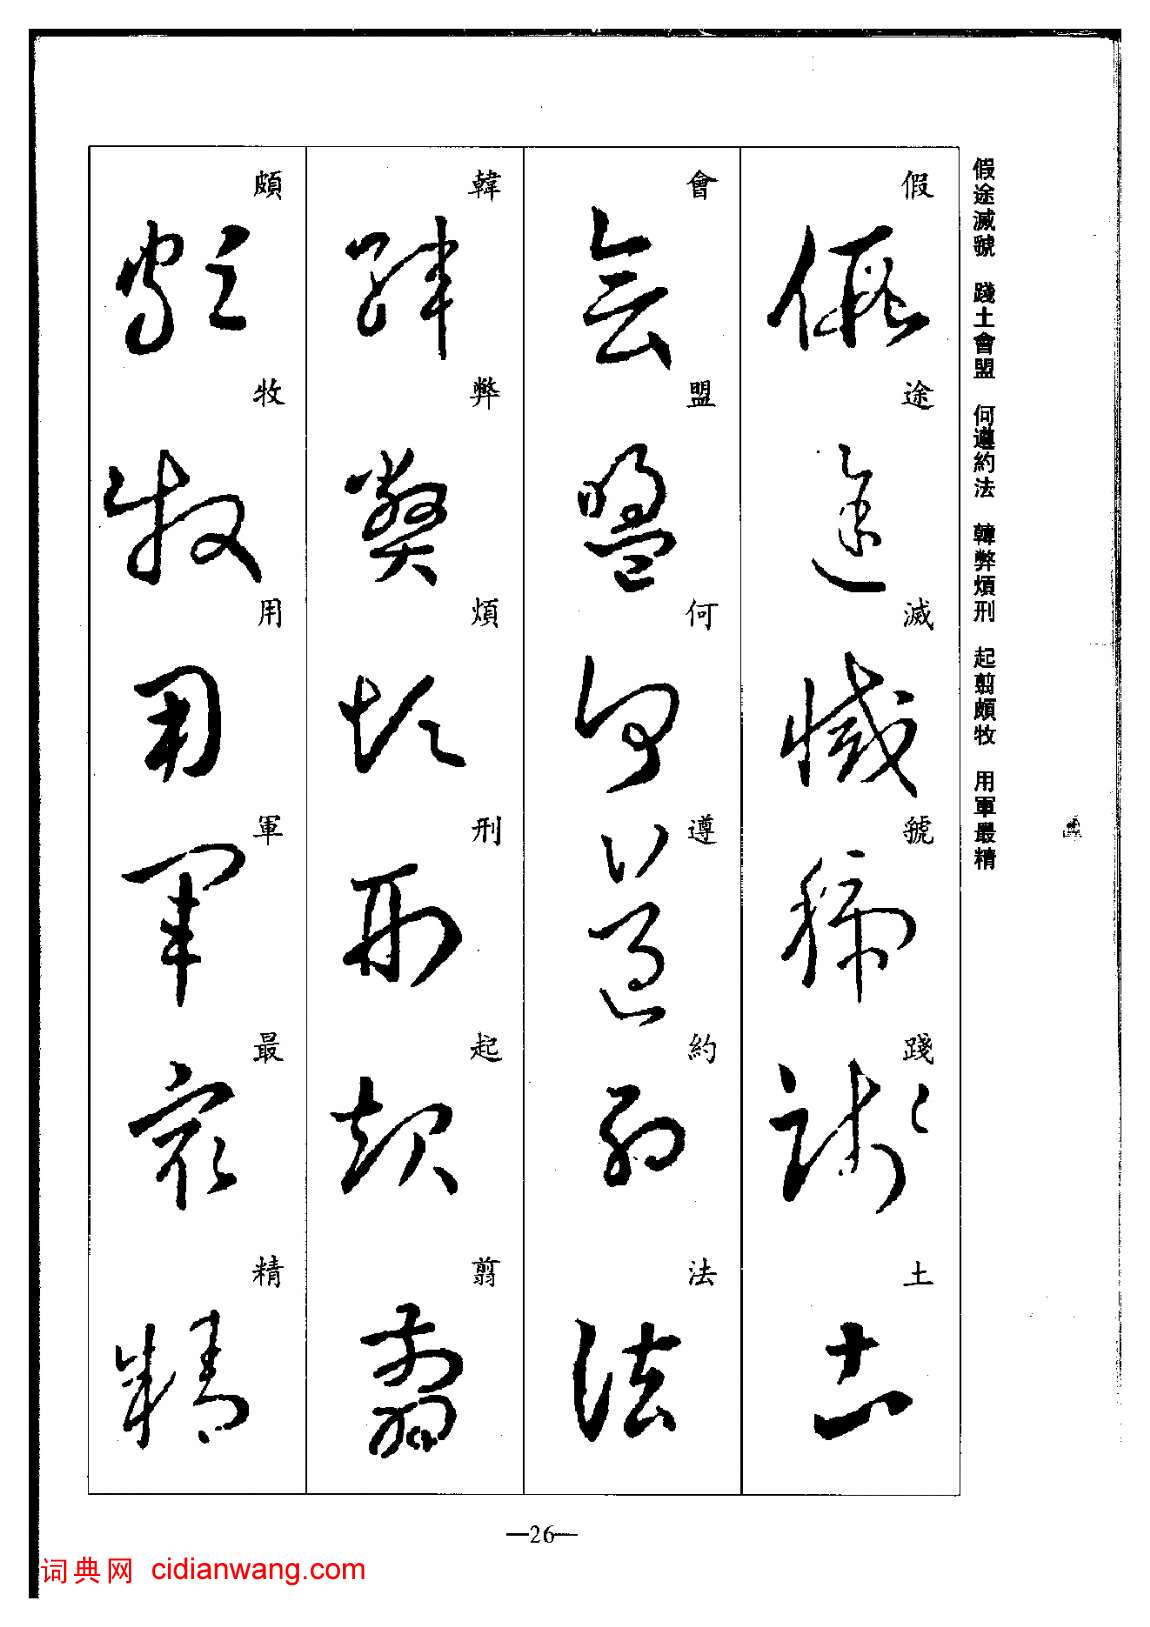 假途滅虢 踐土會盟 何遵約法 韓弊煩刑 起翦頗牧 用軍最精
假途滅虢踐土
會盟何遵約法
韓弊煩刑起翦
頗牧用軍最精
—26—
词典网 cidianwang.com